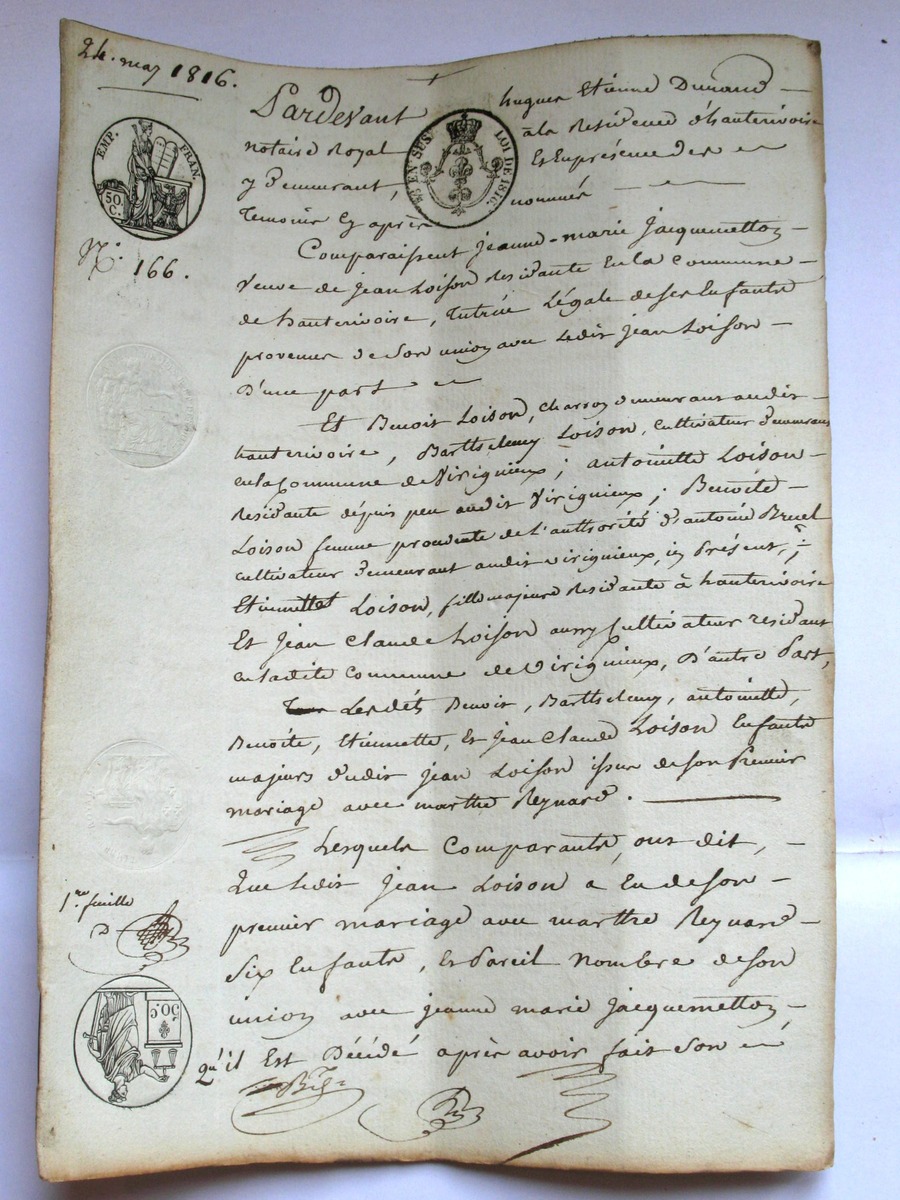 24. may 1816.
Pardevant hugues Etienne Durand
notaire Royal à la Résidence d'hauterivoire
y demeurant Et En présence des
témoins Cy après nommés
EMP. FRAN.
50. C.
EN SUS LOI DE 1816.
N.° 166.
Comparaissent jeanne-marie jacquemetton
veuve de jean Loison Residante En la Commune
de hauterivoire, tutrice Légale de ses Enfants
provenus de son union avec Ledit jean Loison
d'une part
Et Benoit Loison, charron demeurant audit
hauterivoire, Barthelemy Loison, Cultivateur demeurant
en la Commune de Virignieux; antoinette Loison
Residante dépuis peu audit Virignieux; Benoite
Loison femme procedante de l'authorité d'antoine Bruel
cultivateur demeurant audit virignieux, icy Présent,
Etiennette Loison, fille majeure Residante à hauterivoire
Et jean Claude Loison aussy Cultivateur residant
en ladite Commune de Virignieux, D'autre Part,
Lesdits Benoit, Barthelemy, antoinette,
Benoite, Etiennette, Et jean Claude Loison Enfants
majeurs dudit jean Loison issus de son Premier
mariage avec marthe Reynard.
Lesquels Comparants, ont dit,
Que Ledit jean Loison a Eu de son
premier mariage avec marthe Reynard
Six Enfants, Et Pareil Nombre de son
union avec jeanne marie jacquemetton
qu'il Est Décédé après avoir fait son
1.re feuille
50. C.